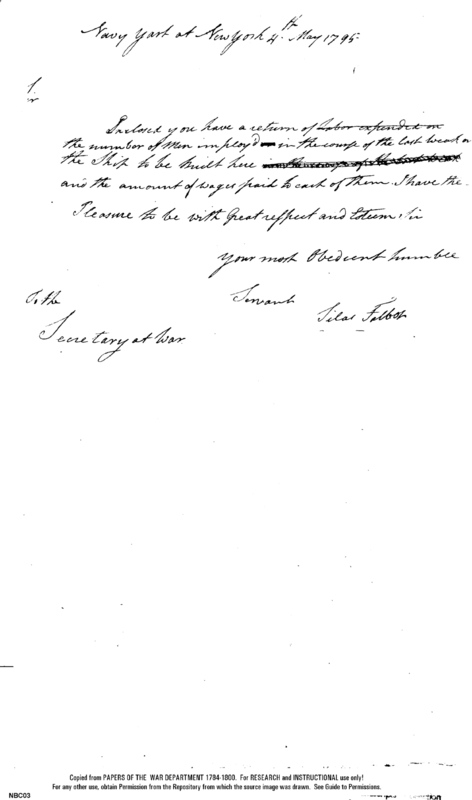 Navy Yard at New York 4th May 1795
Sir
Inclosed you have a return of Labor expended on
the number of Men imploy'd in the course of the last week on
the Ship to be built here in the course of the last week
and the amount of wages paid to each of them. I have the
Pleasure to be with Great respect and Esteem, Sir
Your most Obedient humble
Servant
Silas Talbot
To the
Secretary at War
Copied from PAPERS OF THE WAR DEPARTMENT 1784-1800. For RESEARCH and INSTRUCTIONAL use only!
For any other use, obtain Permission from the Repository from which the source image was drawn. See Guide to Permissions.
NBC03